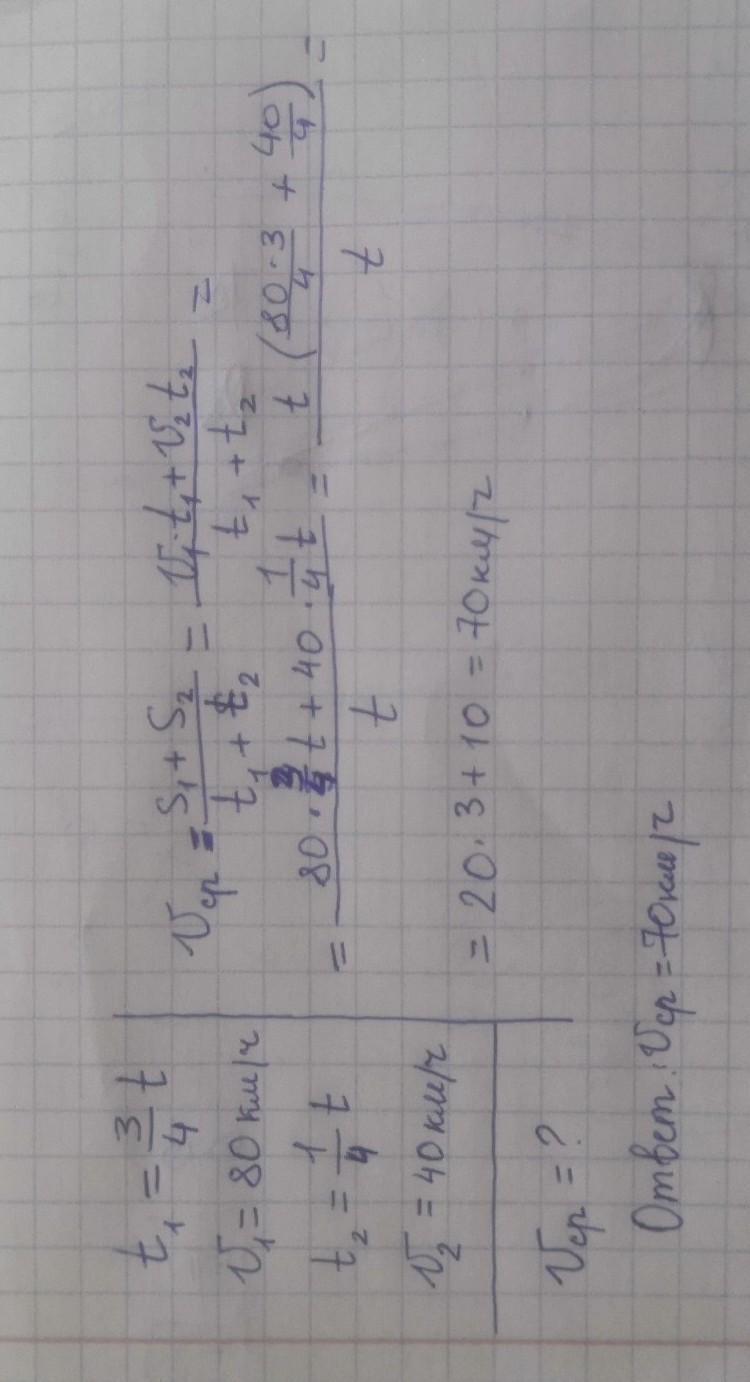 t₁ = 3/4 t
υ₁ = 80 км/ч
t₂ = 1/4 t
υ₂ = 40 км/ч
υср = ?
υср = (S₁ + S₂)/(t₁ + t₂) = (υ₁·t₁ + υ₂t₂)/(t₁ + t₂) =
= (80 · 3/4 t + 40 · 1/4 t)/t = t (80·3/4 + 40/4)/t =
= 20·3 + 10 = 70 км/ч
Ответ: υср = 70 км/ч